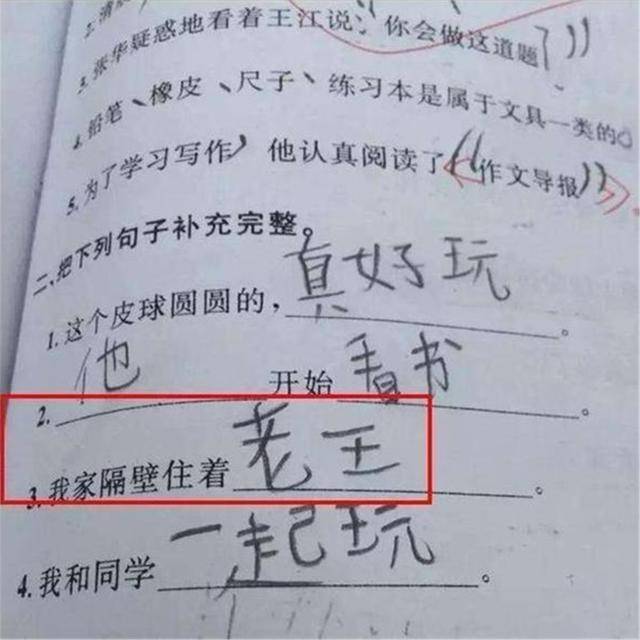 3. 张华疑惑地看着王江说：你会做这道题？”
4. 铅笔、橡皮、尺子、练习本是属于文具一类的。
5. 为了学习写作，他认真阅读了《作文导报》
二、把下列句子补充完整。
1. 这个皮球圆圆的，真好玩。
2. 他开始看书。
3. 我家隔壁住着老王。
4. 我和同学一起玩。